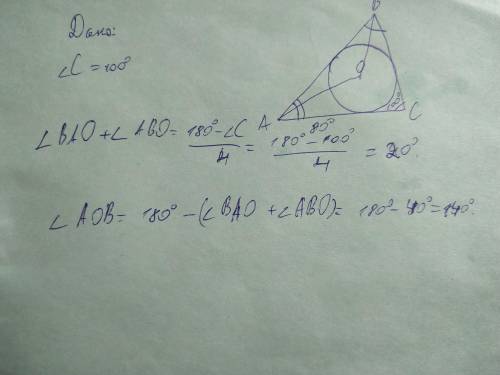 Дано:
∠C = 100°
B
O
A
C
∠BAO + ∠ABO = (180° - ∠C)/4 = (180° - 100°)/4 = 20°.
80°
∠AOB = 180° - (∠BAO + ∠ABO) = 180° - 40° = 140°.